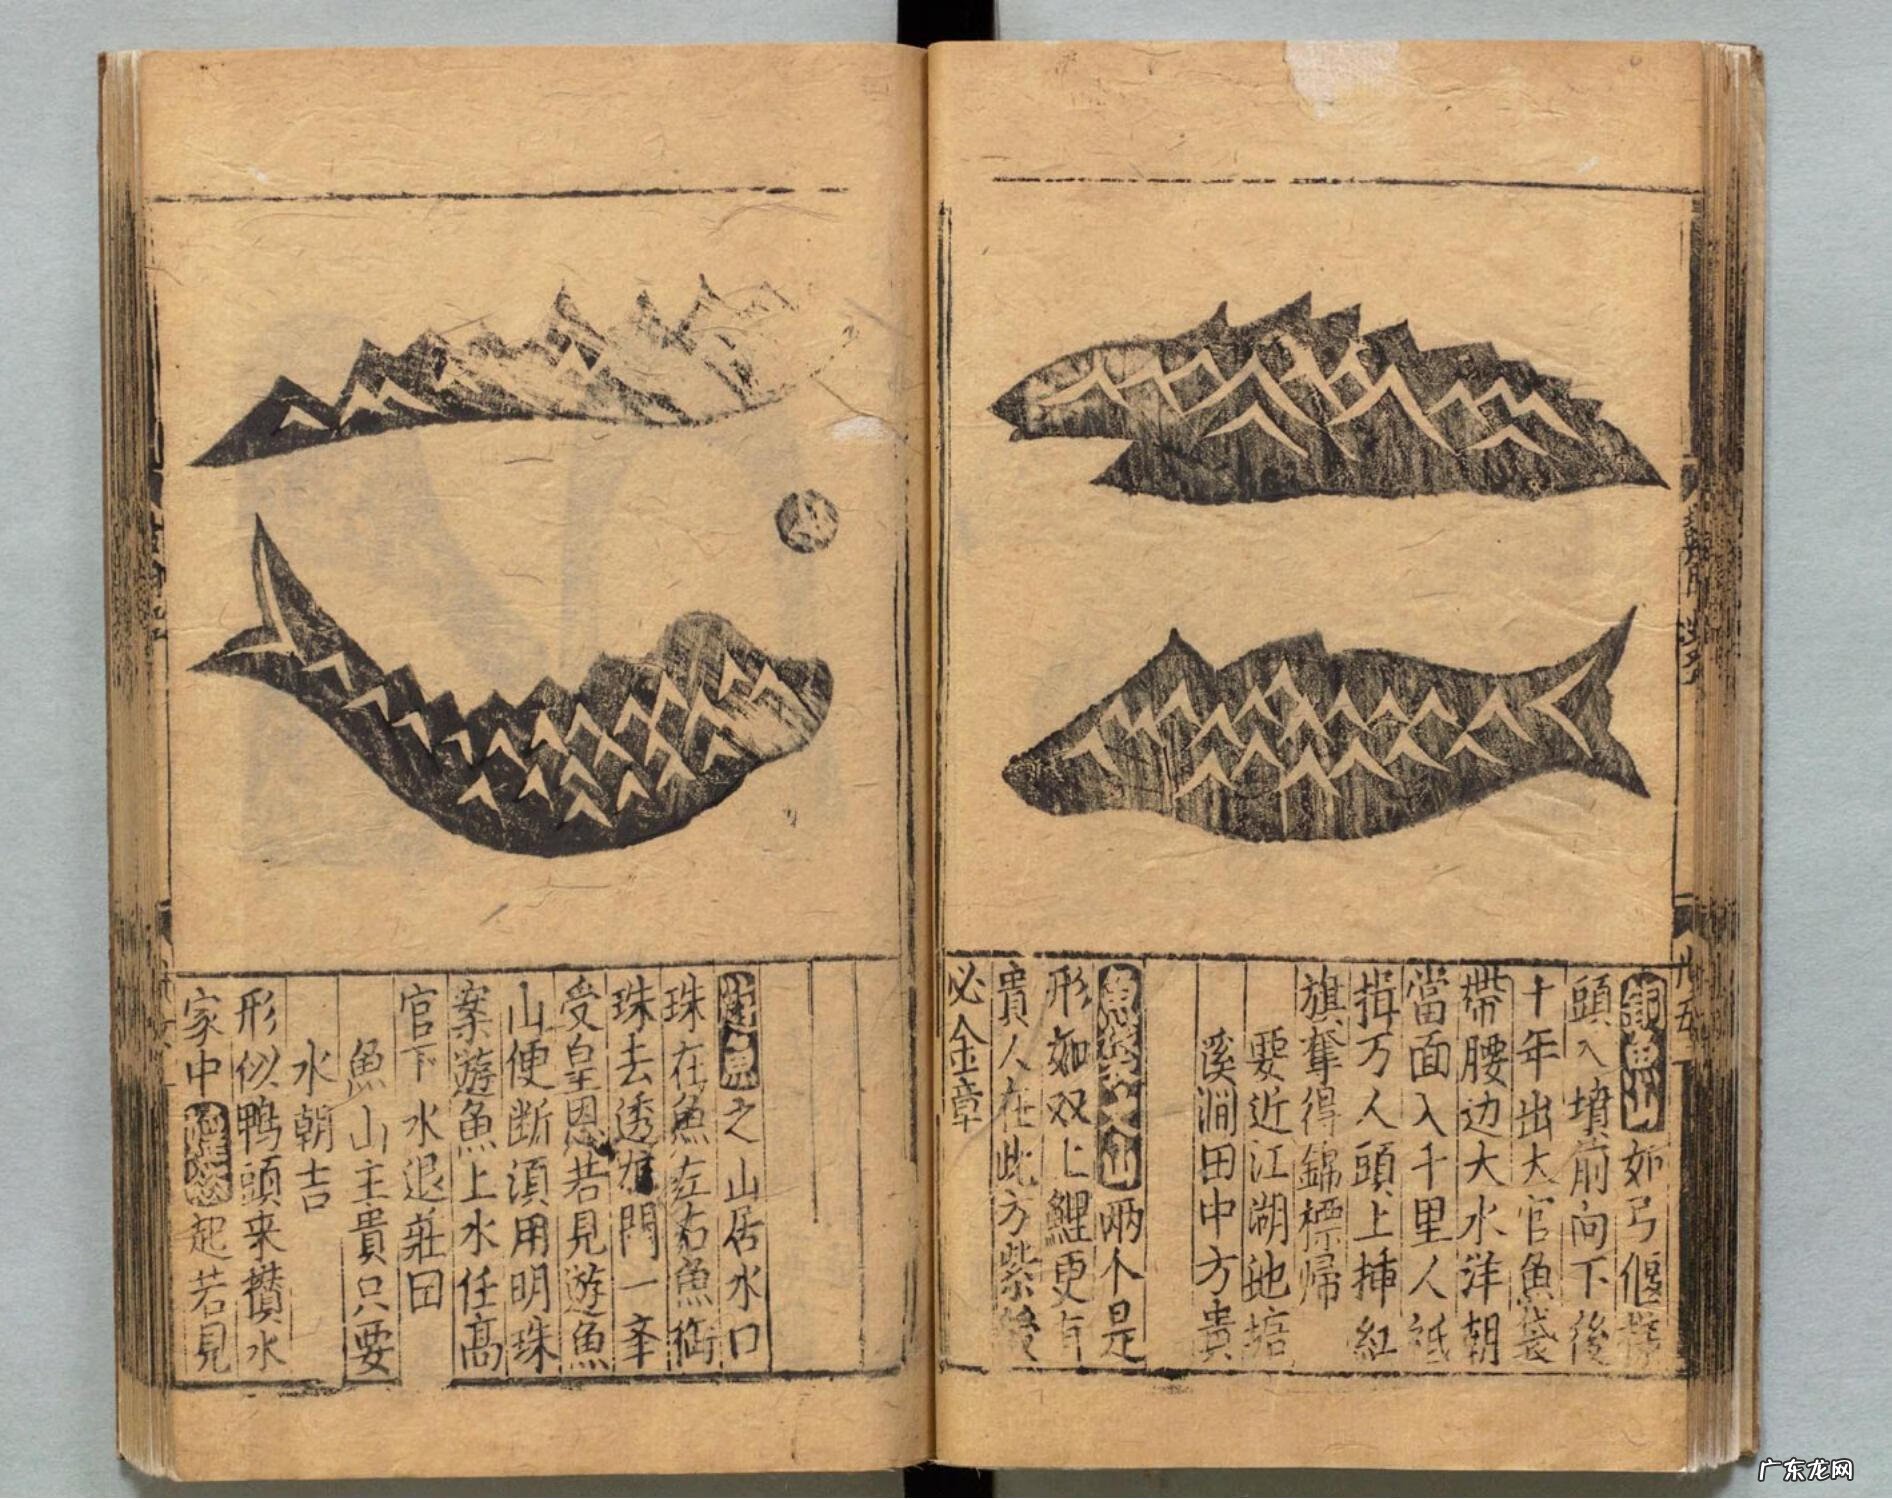 魚山如弓偃
頭入墳前向下後
十年出大官魚袋
帶腰边大水洋朝
當面入千里人祗
揖万人頭上挿紅
旗奪得錦標帰
要近江湖池
溪澗田中方貴
魚袋之山兩个是
形如双上鯉更有
貴人在此方紫綬
必金章
魚之山居水口
珠在魚左右魚衒
珠去透 門一峯
受皇恩若見遊魚
山便断湏用明珠
案遊魚上水任高
官下水退莊田
魚山主貴只要
水朝吉
形似鴨頭来攅水
家中 起若見
广东龙网